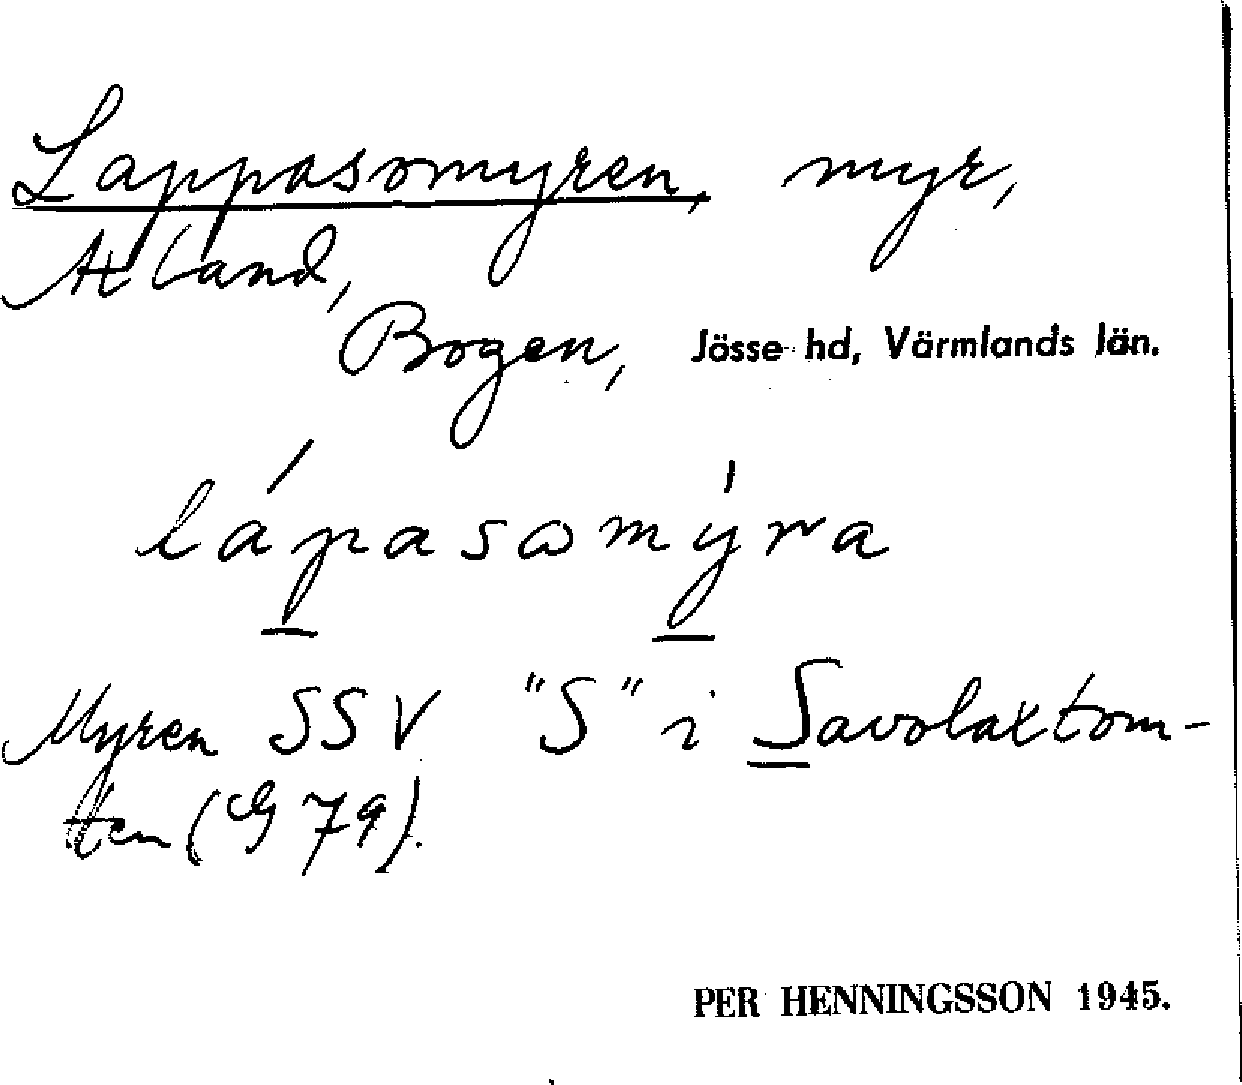 Lappasomyren, myr,
Atland,
Bogen, Jösse hd, Värmlands län.
lápasωmýra
Myren SSV "S" i Savolaxtom-
ten (G 79).
PER HENNINGSSON 1945.